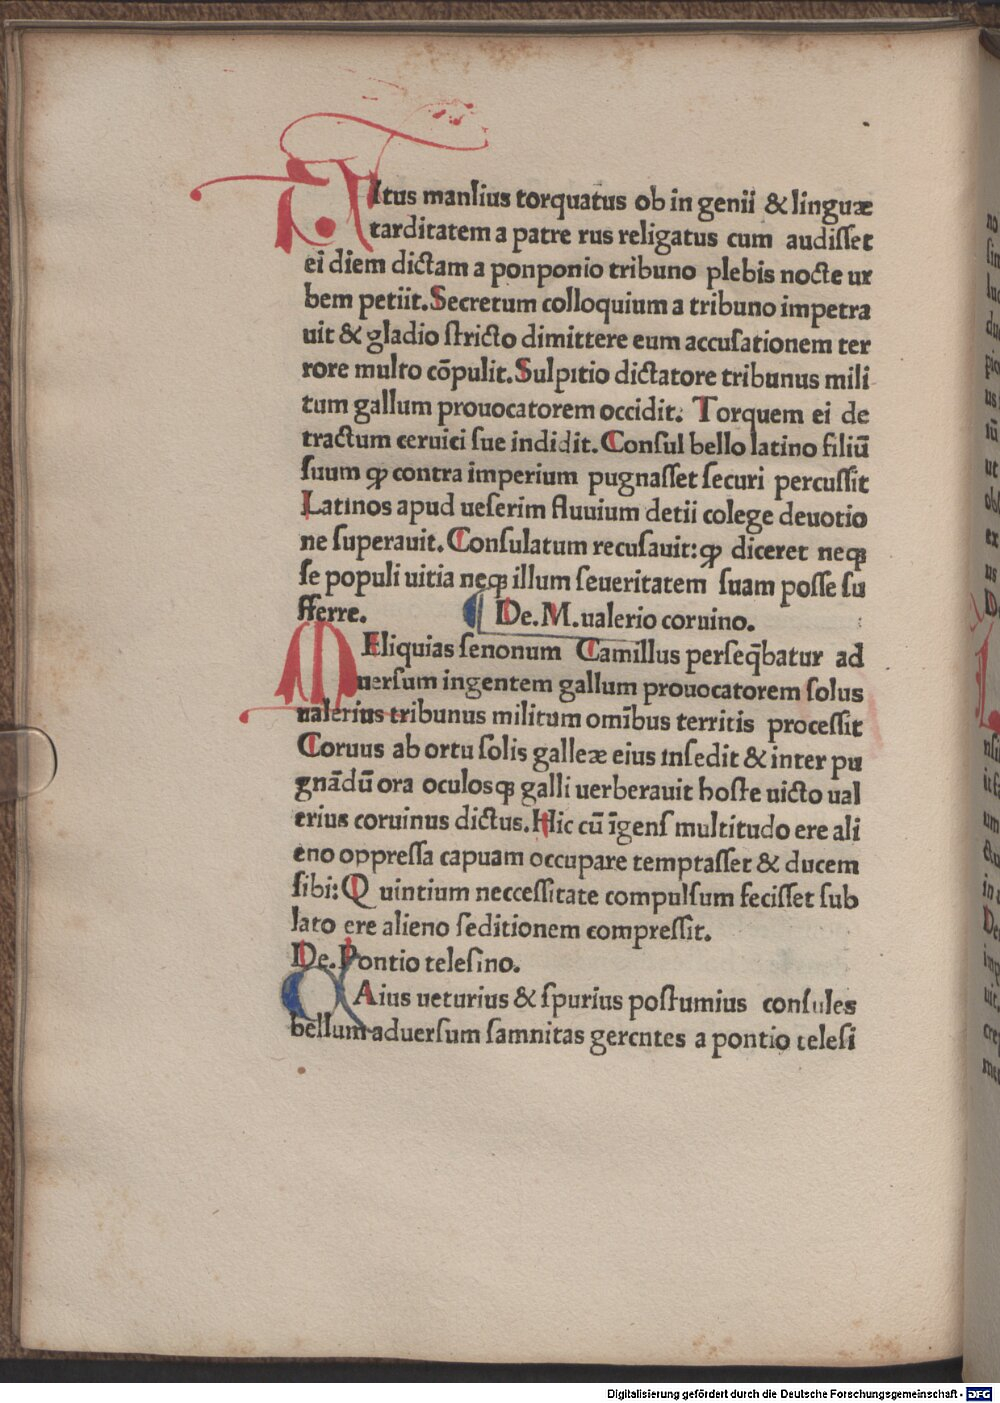 TItus manlius torquatus ob in genii & linguæ
tarditatem a patre rus religatus cum audiſſet
ei diem dictam a ponponio tribuno plebis nocte ur
bem petiit. Secretum colloquium a tribuno impetra
uit & gladio ſtricto dimittere eum accuſationem ter
rore multo cōpulit. Sulpitio dictatore tribunus mili
tum gallum prouocatorem occidit: Torquem ei de
tractum ceruici ſue indidit. Conſul bello latino filiū
ſuum ꝙ contra imperium pugnaſſet ſecuri percuſſit
Latinos apud ueſerim fluuium detii colege deuotio
ne ſuperauit. Conſulatum recuſauit: ꝙ diceret neqꝫ
ſe populi uitia neqꝫ illum ſeueritatem ſuam poſſe ſu
fferre. De. M. ualerio coruino.
MEliquias ſenonum Camillus perſeq̄batur ad
uerſum ingentem gallum prouocatorem ſolus
ualerius tribunus militum omībus territis proceſſit
Coruus ab ortu ſolis galleæ eius inſedit & inter pu
gnādū ora oculosqꝫ galli uerberauit hoſte uicto ual
erius coruinus dictus. Hic cū īgenſ multitudo ere ali
eno oppreſſa capuam occupare temptaſſet & ducem
ſibi: Q uintium necceſſitate compulſum feciſſet ſub
lato ere alieno ſeditionem compreſſit.
De. Pontio teleſino.
CAius ueturius & ſpurius poſtumius conſules
bellum aduerſum ſamnitas gerentes a pontio teleſi
Digitalisierung gefördert durch die Deutsche Forschungsgemeinschaft - DFG